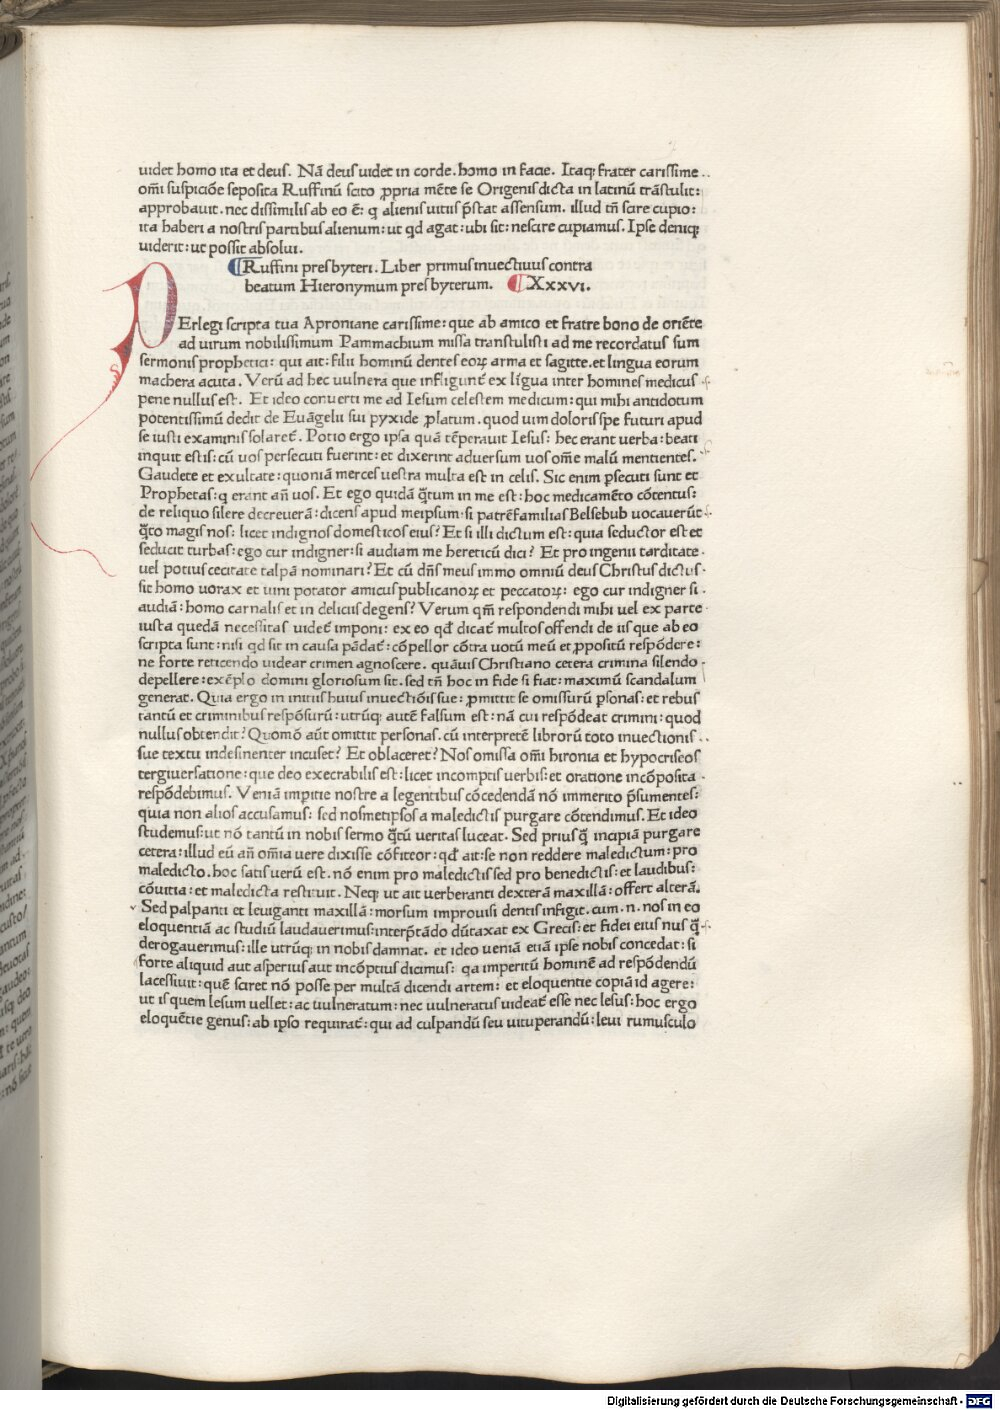 uidet homo ita et deus. Nā deus uidet in corde. homo in facie. Itaq; frater carissime
om̄i suspiciōe seposita Ruffinū scito ꝓpria mēte se Origenis dicta in latinū trāstulit:
approbauit. nec dissimilis ab eo ē: q alienis uitiis p̄stat assensum. illud tn̄ scire cupio:
ita haberi a nostris partibus alienum: ut qd agat: ubi sit: nescire cupiamus. Ipse deniq;
uiderit: ut possit absolui.
¶Ruffini presbyteri. Liber primus inuectiuus contra
beatum Hieronymum presbyterum. ¶Xxxvi.
PErlegi scripta tua Aproniane carissime: que ab amico et fratre bono de oriēte
ad uirum nobilissimum Pammachium missa transtulisti ad me recordatus sum
sermonis prophetici: qui ait: filii hominū dentes eoꝝ arma et sagitte. et lingua eorum
machera acuta. Verū ad hec uulnera que infligunt̄ ex līgua inter homines medicus
pene nullus est. Et ideo conuerti me ad Iesum celestem medicum: qui mihi antidotum
potentissimū dedit de Euāgelii sui pyxide ꝓlatum. quod uim doloris spe futuri apud
se iusti examinis solaret̄. Potio ergo ipsa quā tēperauit Iesus: hec erant uerba: beati
inquit estis: cū uos persecuti fuerint: et dixerint aduersum uos om̄e malū mentientes.
Gaudete et exultate: quoniā merces uestra multa est in celis. Sic enim ꝑsecuti sunt et
Prophetas: q erant an̄ uos. Et ego quidā q̄tum in me est: hoc medicamēto cōtentus:
de reliquo silere decreuerā: dicens apud meipsum. si patrēfamilias Belsebub uocauerūt
q̄to magis nos: licet indignos domesticos eius? Et si illi dictum est: quia seductor est et
seducit turbas: ego cur indigner: si audiam me hereticū dici? Et pro ingenii tarditate
uel potius cecitate talpā nominari? Et cū dn̄s meus immo omniū deus Christus dictus
sit homo uorax et uini potator amicus publicanoꝝ et peccatoꝝ: ego cur indigner si
audiā: homo carnalis et in deliciis degens? Verum qm̄ respondendi mihi uel ex parte
iusta quedā necessitas uidet̄ imponi: ex eo qd̄ dicat̄ multos offendi de iis que ab eo
scripta sunt: nisi qd sit in causa pādat̄: cōpellor cōtra uotū meū et ꝓpositū respōdere:
ne forte reticendo uidear crimen agnoscere. quāuis Christiano cetera crimina silendo
depellere: exēplo domini gloriosum sit. sed tn̄ hoc in fide si fiat: maximū scandalum
generat. Quia ergo in initiis huius inuectiōis sue: ꝓmittit se omissurū ꝑsonas: et rebus
tantū et criminibus respōsurū: utrūq; autē falsum est: nā cui respōdeat crimini: quod
nullus obtendit? Quomō aūt omittit personas. cū interpretē librorū toto inuectionis
sue textu indesinenter incuset? Et oblaceret? Nos omissa om̄i hironia et hypocriseos
tergiuersatione: que deo execrabilis est: licet incomptis uerbis: et oratione incōposita
respōdebimus. Veniā imꝑitie nostre a legentibus cōcedendā nō immerito p̄sumentes:
quia non alios accusamus: sed nosmetipsos a maledictis purgare cōtendimus. Et ideo
studemus: ut nō tantū in nobis sermo q̄tū ueritas luceat. Sed prius q̄ incipiā purgare
cetera: illud eū an̄ om̄ia uere dixisse cōfiteor: qd̄ ait: se non reddere maledictum: pro
maledicto. hoc satis uerū est. nō enim pro maledictis sed pro benedictis: et laudibus:
cōuitia: et maledicta restituit. Neq; ut ait uerberanti dexterā maxillā: offert alterā.
Sed palpanti et leuiganti maxillā: morsum improuisi dentis infigit. cum .n. nos in eo
eloquentiā ac studiū laudauerimus: interp̄tādo dūtaxat ex Grecis: et fidei eius nus q̄
derogauerimus: ille utrūq; in nobis damnat. et ideo ueniā etiā ipse nobis concedat: si
forte aliquid aut asperius aut incōptius dicimus: qa imperitū hominē ad respōdendū
lacessiuit: quē sciret nō posse per multā dicendi artem: et eloquentie copiā id agere:
ut is quem lesum uellet: ac uulneratum: nec uulneratus uideat̄ esse nec lesus: hoc ergo
eloquētie genus: ab ipso requirat̄: qui ad culpandū seu uituperandū: leui rumusculo
Digitalisierung gefördert durch die Deutsche Forschungsgemeinschaft - DFG